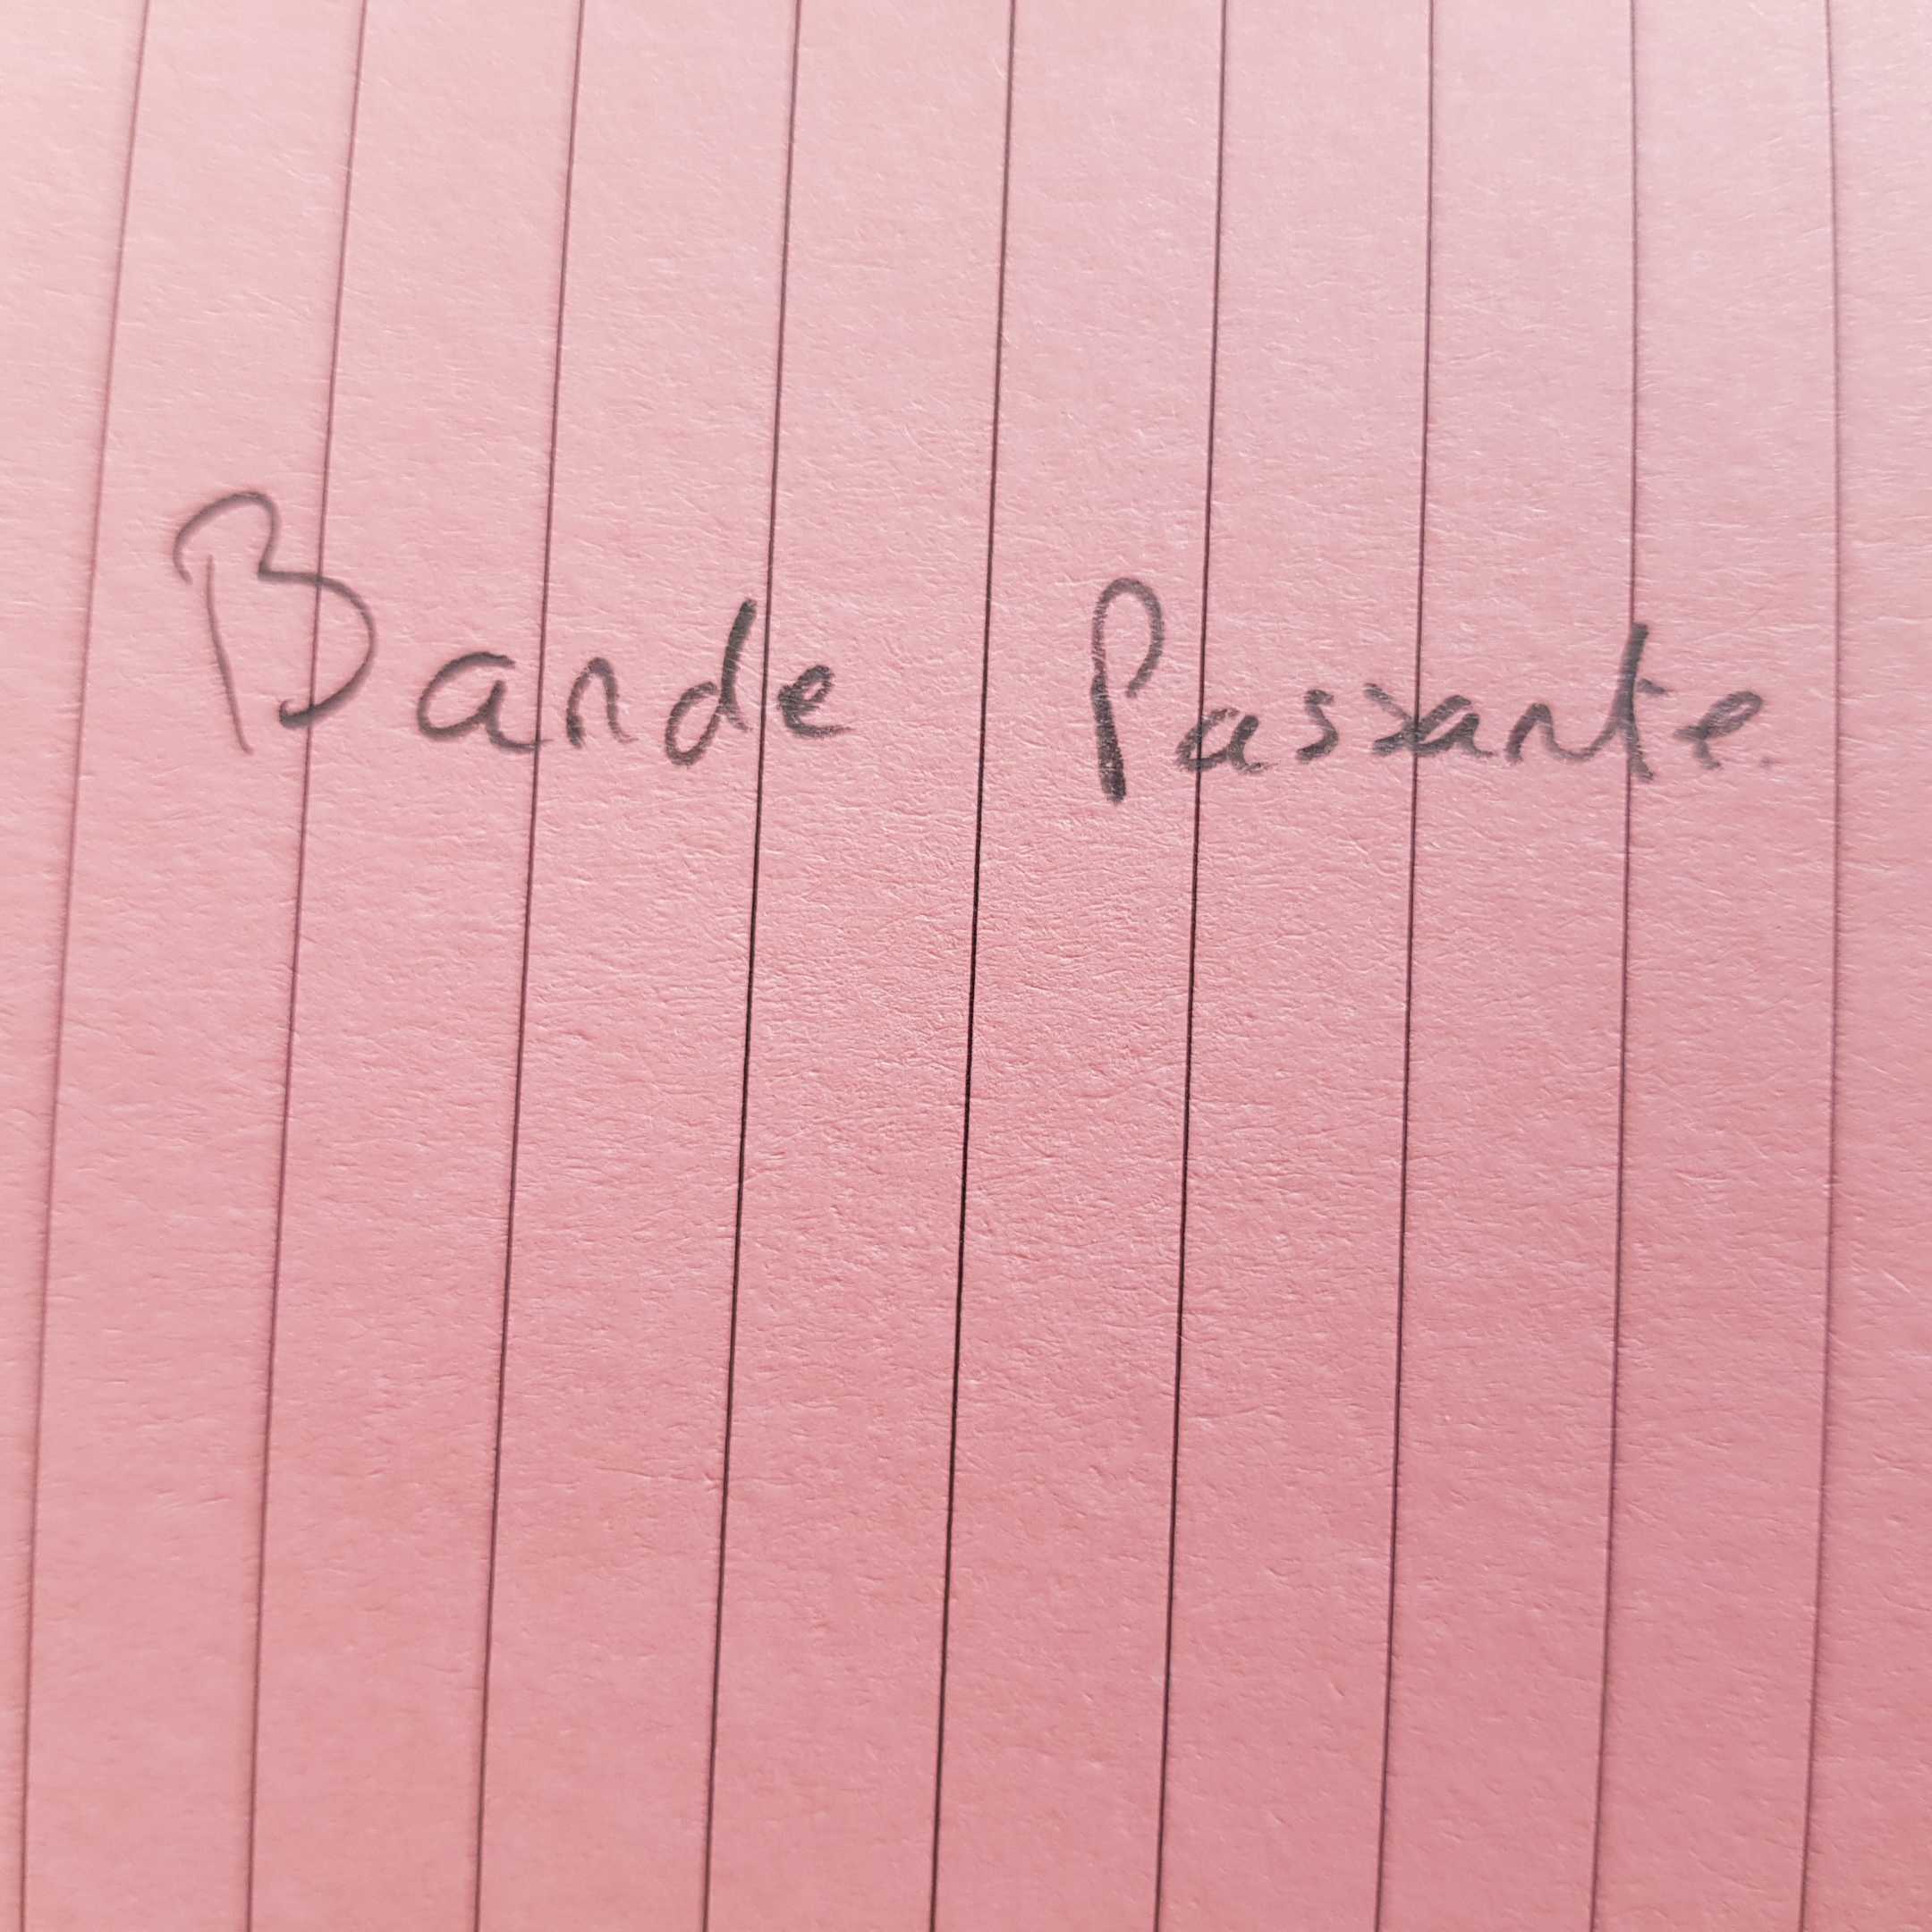 Bande Passante.